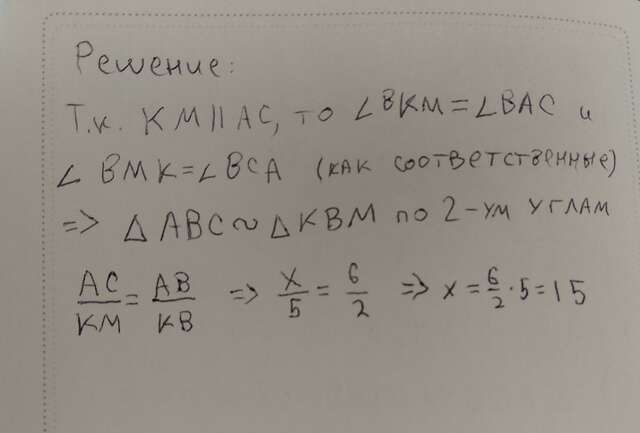 Решение:
Т.к. KM || AC, то ∠BKM = ∠BAC и
∠ BMK = ∠BCA (как соответственные)
=> Δ ABC ~ Δ KBM по 2-ум углам
AC/KM = AB/KB => x/5 = 6/2 => x = 6/2 · 5 = 15